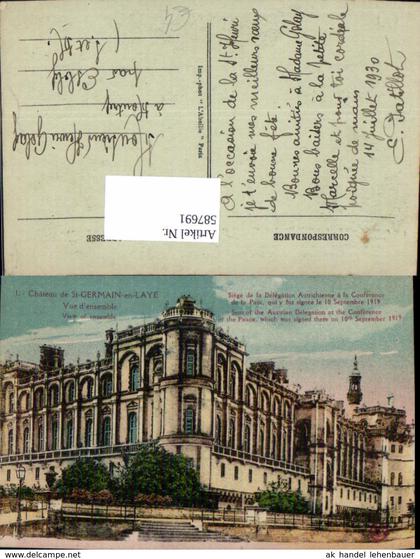 A l'occasion de la St. Henri
je t'envoie mes meilleurs vœux
de bonne fête.
Bonnes amitiés à Madame Gelay
Bons baisers à la petite
Marcelle et pour toi cordiale
poignée de mains
14 Juillet 1930
Monsieur Henri Gelay
à
par
CORRESPONDANCE
ADRESSE
Imp.-phot. "L'Abeille" Paris
Artikel Nr.
587691
1. - Château de St-GERMAIN-en-LAYE
Vue d'ensemble
View of ensemble
Siège de la Délégation Autrichienne à la Conférence
de la Paix, qui y fut signée le 10 Septembre 1919
Seat of the Austrian Delegation at the Conference
of the Peace, which was signed there on 10th September 1919
ak handel lehenbauer